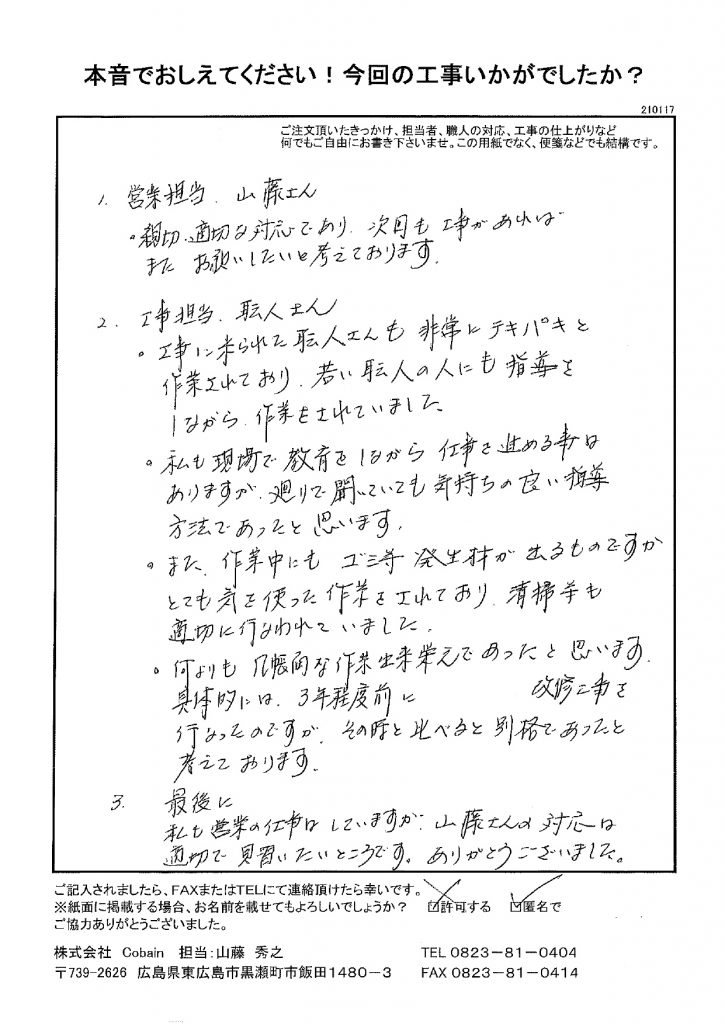 本音でおしえてください！今回の工事いかがでしたか？
210117
ご注文頂いたきっかけ、担当者、職人の対応、工事の仕上がりなど
何でもご自由にお書き下さいませ。この用紙でなく、便箋などでも結構です。
1. 営業担当. 山藤さん
・親切、適切な対応であり、次回も工事があれば
また お願いしたいと考えております.
2. 工事担当. 職人さん
・工事に来られた職人さんも 非常に テキパキと
作業されており、若い職人の人にも指導を
しながら 作業をされていました。
・私も現場で教育をしながら 仕事を進める事は
ありますが、廻りで聞いていても気持ちの良い指導
方法であったと思います.
・また、作業中にも ゴミ等 発生材が出るものですが
とても気を使った作業をされており、清掃等も
適切に行なわれていました.
・何よりも 几帳面な作業出来栄えであったと思います.
具体的には、3年程度前に 改修工事を
行なったのですが、その時と比べると別格であったと
考えております.
3. 最後に
私も営業の仕事はしていますが、山藤さんの対応は
適切で見習いたいところです。ありがとうございました。
ご記入されましたら、FAXまたはTELにて連絡頂けたら幸いです。
※紙面に掲載する場合、お名前を載せてもよろしいでしょうか？ ☑許可する ☑匿名で
ご協力ありがとうございました。
株式会社 Cobain 担当:山藤 秀之 TEL 0823-81-0404
〒739-2626 広島県東広島市黒瀬町市飯田1480-3 FAX 0823-81-0414